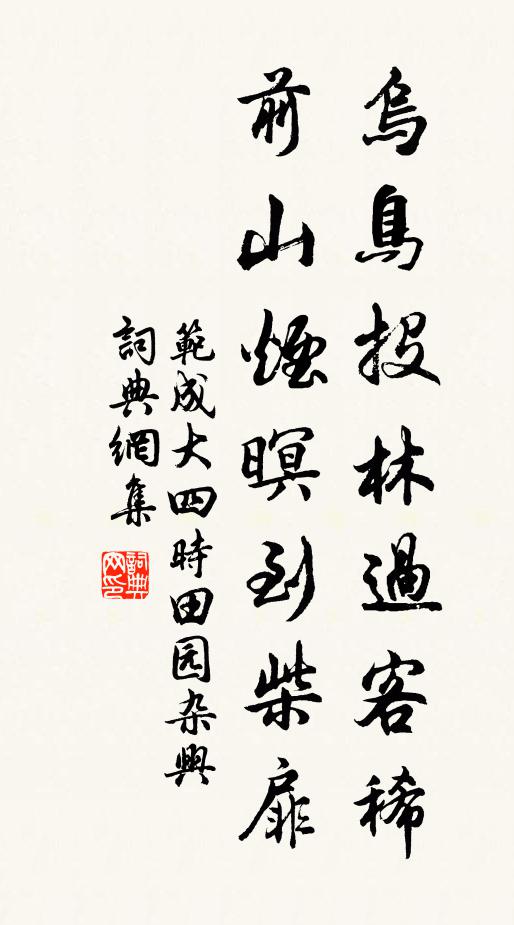 烏鳥投林過客稀
前山煙暝到柴扉
範成大四時田园杂興
詞典網集
詞典网印